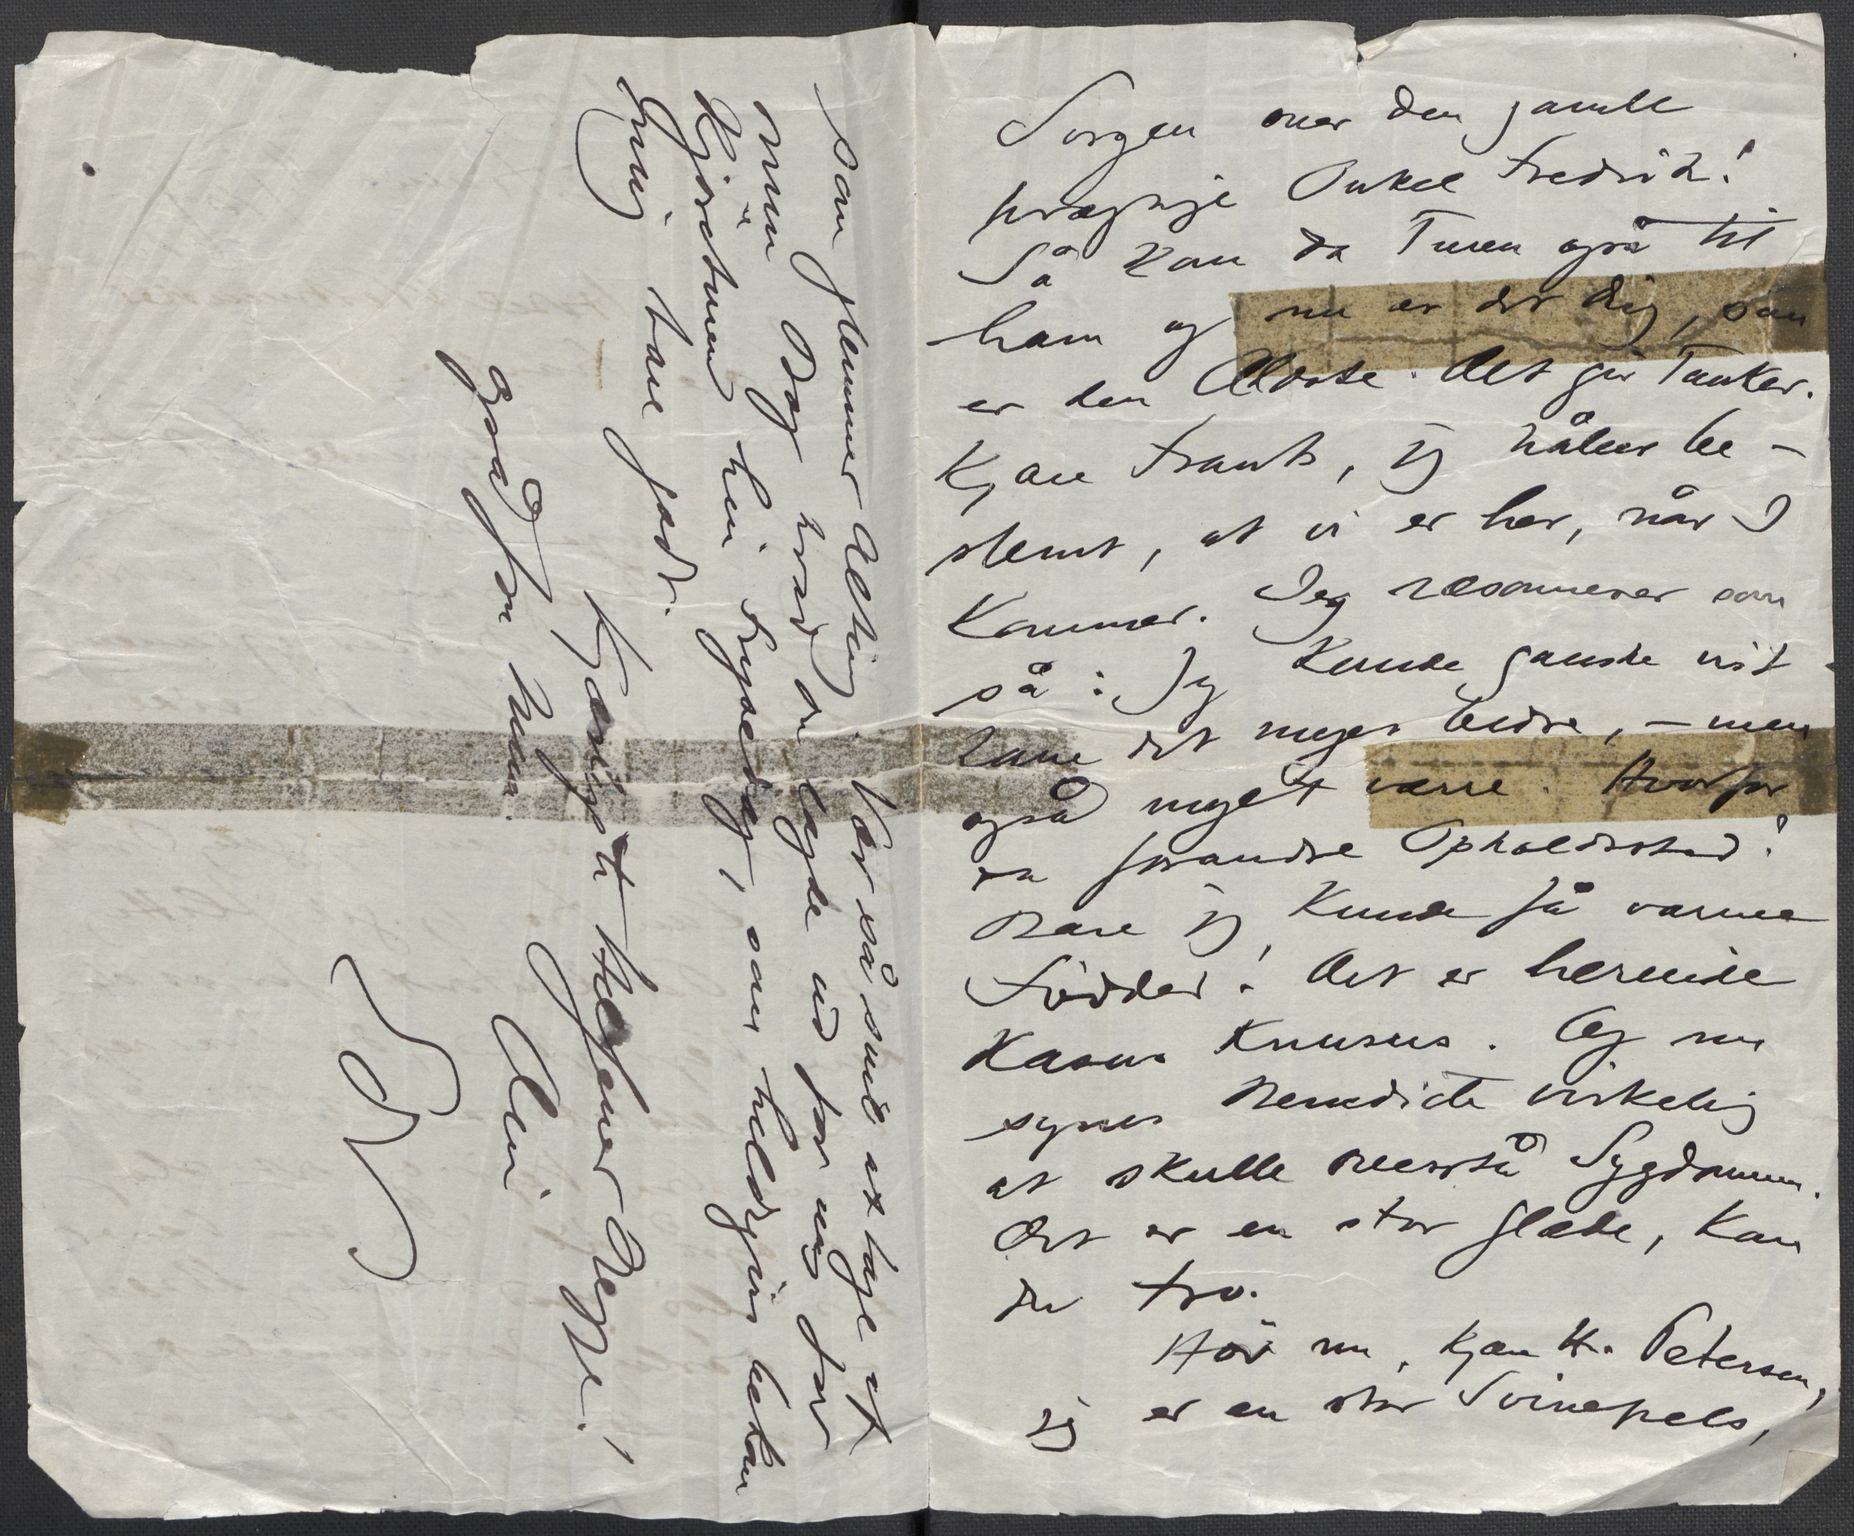 Sorgen over den gamle
prægtige Onkel Fredrik!
Så kom da Turen også til
ham og nu er det dig, som
er den Ældste. Det gir Tanker.
Kjære Frants, jeg håber be-
stemt, at vi er her, når I
kommer. Jeg ræsonnerer som
så: Jeg kunde ganske vist
have det meget bedre, – men
også meget værre. Hvorfor
da forandre Opholdssted!
Bare jeg kunde få varme
Födder! Det er herinde
Kasus Knusus. Og nu
synes Benedicte virkelig
at skulle overstå Sygdommen.
Det er en stor Glæde, kan
du tro.
Hör nu, kjære H. Petersen,
jeg er en stor Svinepels,
som glemmer Alting. Vær så snil at tage af
min Bog hvad du lagde ud for mig for
Kjoreturen hin Sygedag, som heldigvis bekom
mig bare godt.
Kjærligste Hilsener Beppe!
Din
Edv.
også fra Nina.